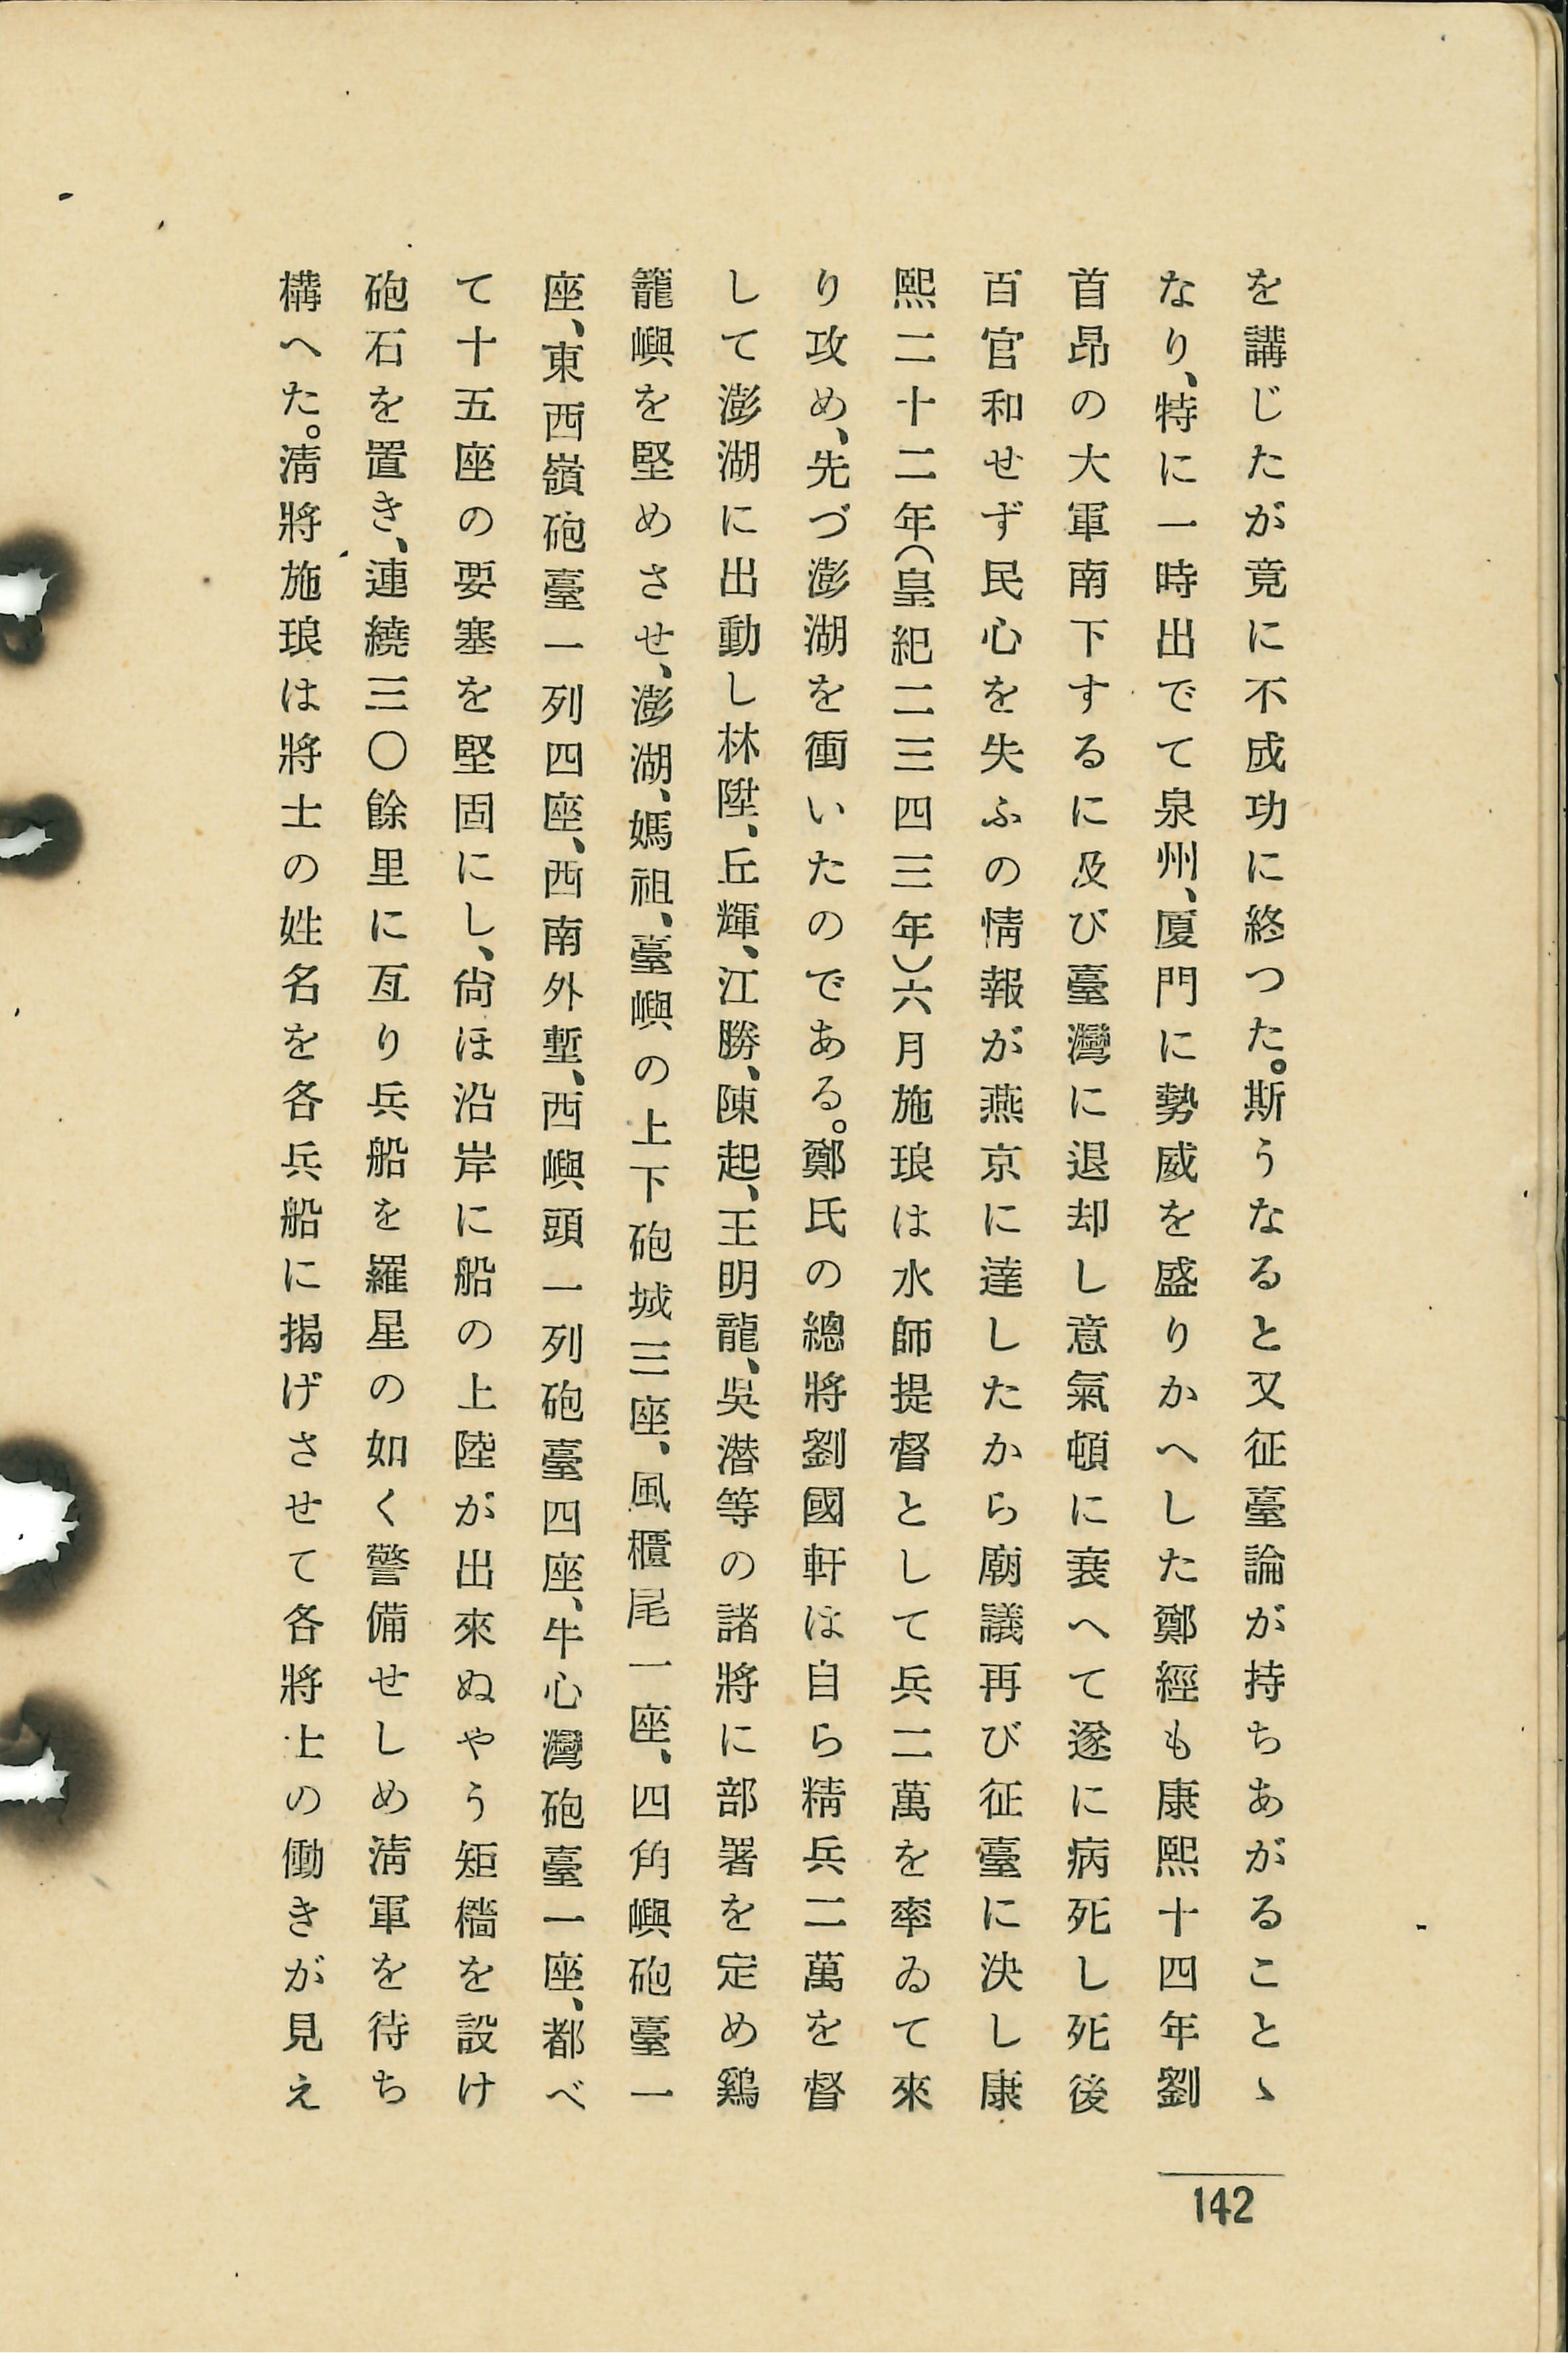 を講じたが竟に不成功に終つた。斯うなると又征臺論が持ちあがることゝ
なり、特に一時出でて泉州、廈門に勢威を盛りかへした鄭經も康熙十四年劉
首昂の大軍南下するに及び臺灣に退却し意氣頓に衰へて遂に病死し死後
百官和せず民心を失ふの情報が燕京に達したから廟議再び征臺に決し康
熙二十二年(皇紀二三四三年)六月施琅は水師提督として兵二萬を率ゐて來
り攻め、先づ澎湖を衝いたのである。鄭氏の總將劉國軒は自ら精兵二萬を督
して澎湖に出動し林陞、丘輝、江勝、陳起、王明龍、吳潜等の諸將に部署を定め鷄
籠嶼を堅めさせ、澎湖、媽祖、臺嶼の上下砲城三座、風櫃尾一座、四角嶼砲臺一
座、東西嶺砲臺一列四座、西南外塹、西嶼頭一列砲臺四座、牛心灣砲臺一座、都べ
て十五座の要塞を堅固にし、尙ほ沿岸に船の上陸が出來ぬやう矩檣を設け
砲石を置き、連繞三〇餘里に亙り兵船を羅星の如く警備せしめ淸軍を待ち
構へた。淸將施琅は將士の姓名を各兵船に揭げさせて各將士の働きが見え
142